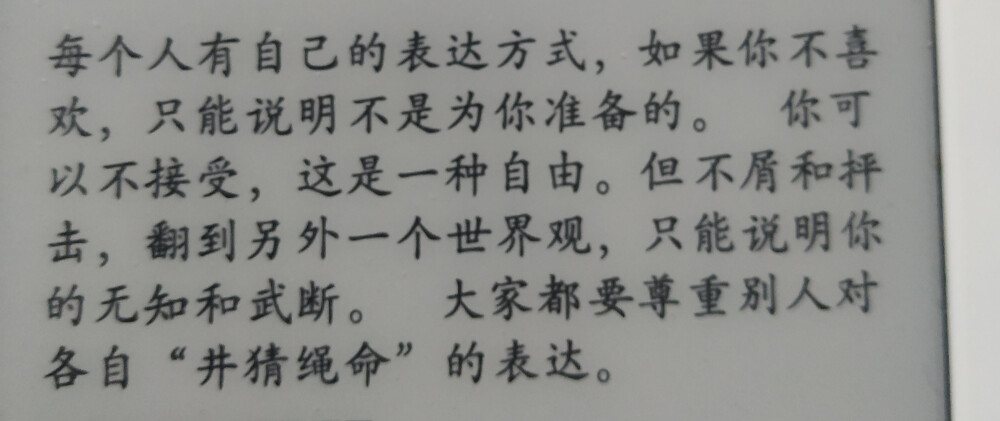 每个人有自己的表达方式，如果你不喜
欢，只能说明不是为你准备的。 你可
以不接受，这是一种自由。但不屑和抨
击，翻到另外一个世界观，只能说明你
的无知和武断。 大家都要尊重别人对
各自“井猜绳命”的表达。